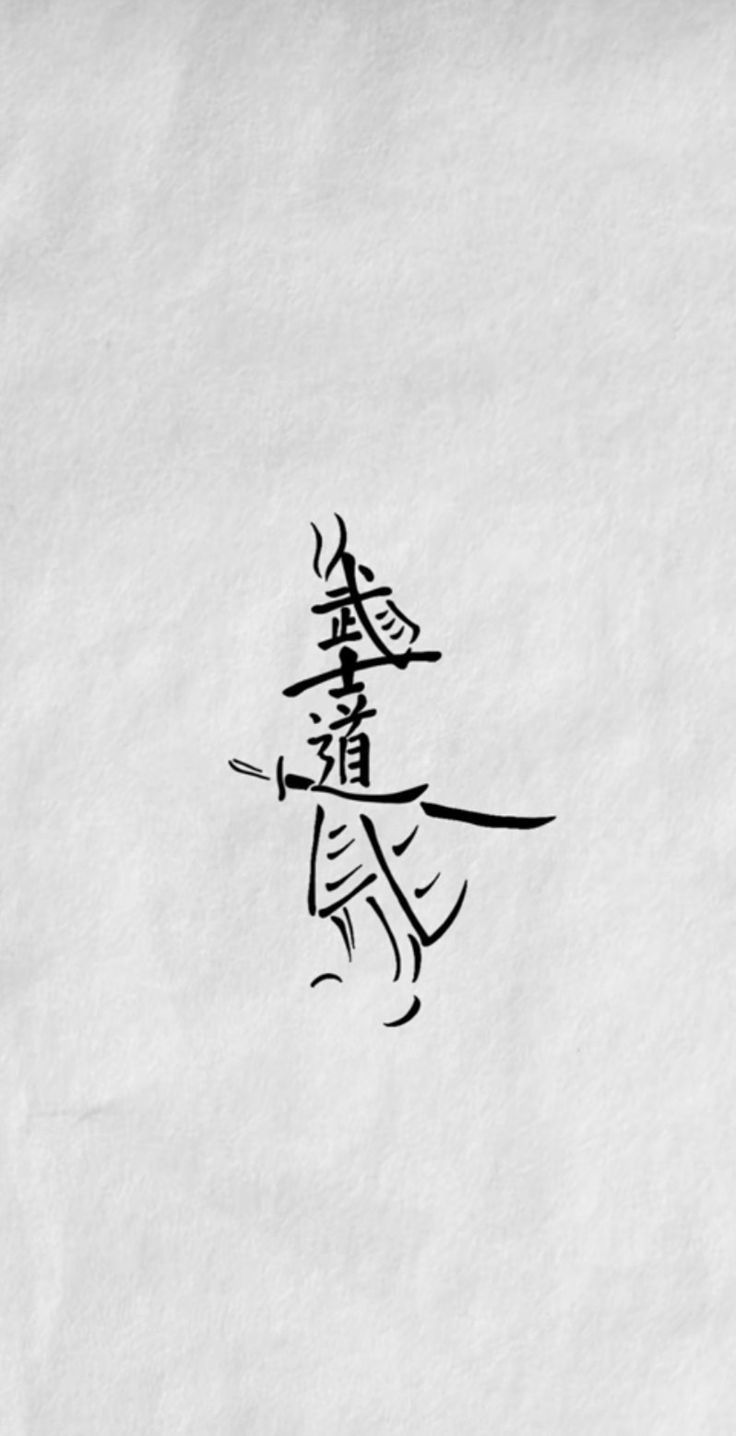 武
士
道